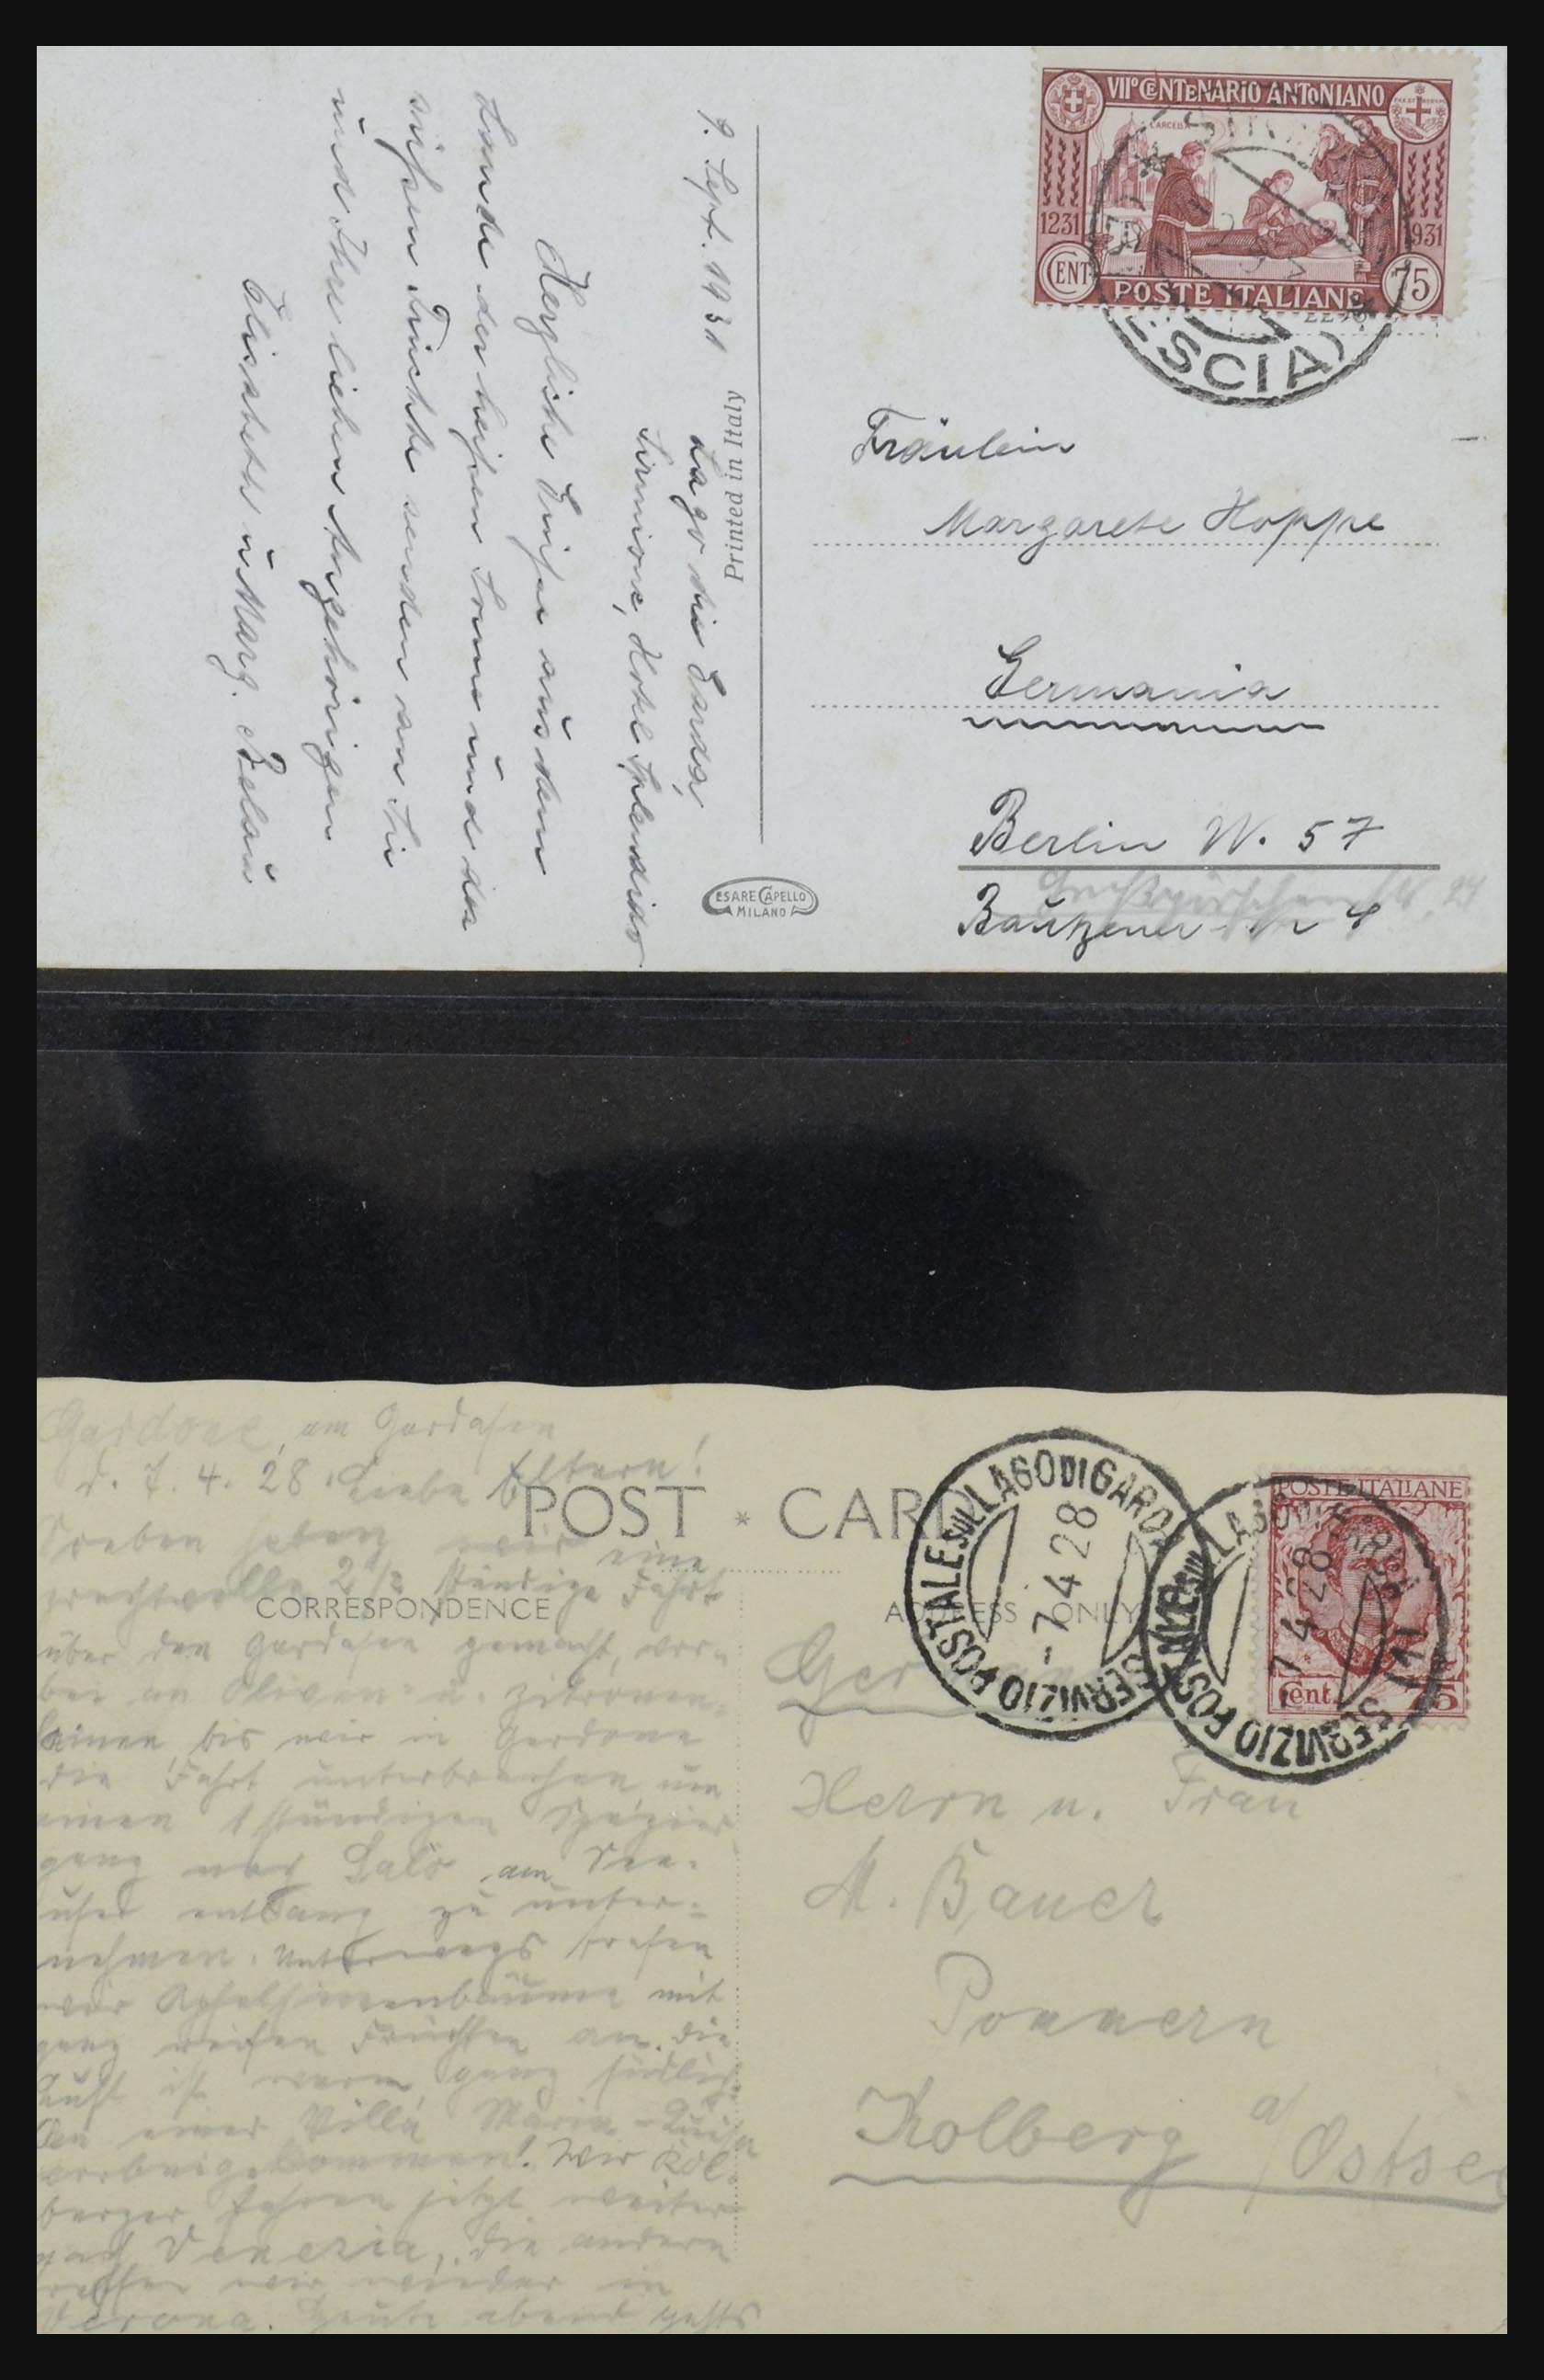 VIIº CENTENARIO ANTONIANO
L'ARCELLA
1231
1931
CENT
75
POSTE ITALIANE
SIRM
ESCIA)
9. Sept. 1931
Lago di Garda,
Sirmione, Hotel Splendido
Herzliche Grüße aus dem
Lande der heißen Sonne und der
süßen Früchte senden an Sie
und Ihre lieben Angehörigen
Elisabeth u. Marg. Belau
Printed in Italy
CESARE CAPELLO
MILANO
Fräulein
Margarete Hoppe
Germania
Berlin W. 57
Großgörschenstr. 24
Bautzener
POST * CARD
CORRESPONDENCE
ADDRESS ONLY
Gardone, am Gardasee
d. 7. 4. 28. Liebe Eltern!
Soeben haben wir eine
prachtvolle 2 1/2 stündige Fahrt
über den Gardasee gemacht, vor-
bei an Oliven u. Zitronen-
hainen, bis wir in Gardone
die Fahrt unterbrachen, um
einen 1 stündigen Spazier
gang nach Salo am See-
ufer entlang zu unter-
nehmen. Unterwegs trafen
wir Apfelsinenbäume mit
ganz reifen Früchten an. Die
Luft ist warm, ganz südlich.
An einer Villa Marie-Luise
vorbeigekommen! Wir Kol-
berger fahren jetzt weiter
nach Venezia, die andern
treffen wir wieder in
Verona. Heute abend gehts
SERVIZIO POSTALE SUL LAGO DI GARDA
-7.4.28
SERVIZIO POSTALE SUL LAGO DI GARDA (1)
-7.4.28
POSTE ITALIANE
Cent. 75
Germania
Herrn u. Frau
M. Bauer
Pommern
Kolberg a/Ostsee